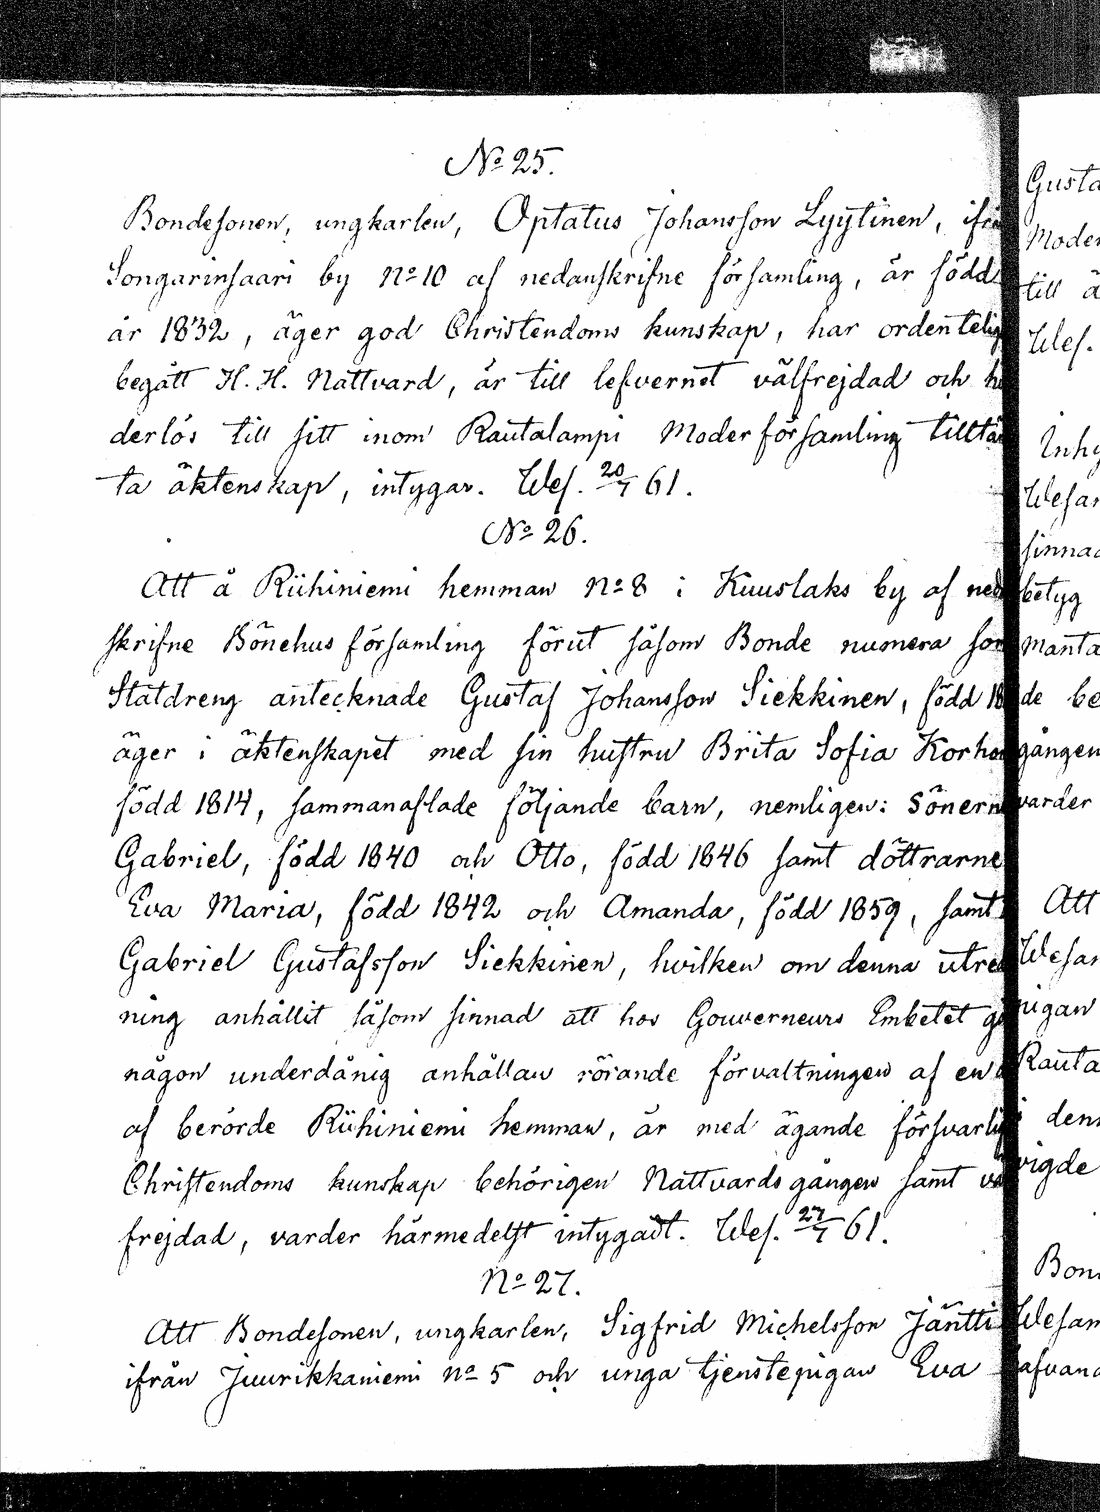 No 25.
Bondesonen, ungkarlen, Optatus Johansson Lyytinen, ifrå
Songarinsaari by No 10 af nedanskrifne församling, är född
år 1832, äger god Christendoms kunskap, har ordentelig
begått H. H. Nattvard, är till lefvernet välfrejdad och h
derlös till sitt inom Rautalampi Moderförsamling tilltä
ta äktenskap, intygar. Wes. 20/7 61.
No 26.
Att å Riihiniemi hemman No 8 i Kuuslaks by af ned
skrifne Bönehus församling förut såsom Bonde numera som
Statdreng antecknade Gustaf Johansson Siekkinen, född 18
äger i äktenskapet med sin hustru Brita Sofia Korho
född 1814, sammanaflade följande barn, nemligen: Sönern
Gabriel, född 1840 och Otto, född 1846 samt döttrarne
Eva Maria, född 1842 och Amanda, född 1859, samt
Gabriel Gustafsson Siekkinen, hvilken om denna utred
ning anhållit såsom sinnad att hos Gouverneurs Embetet gö
någon underdånig anhållan rörande förvaltningen af en
af berörde Riihiniemi hemman, är med ägande försvarlig
Christendoms kunskap behörigen Nattvards gången samt vä
frejdad, varder härmedelst intygadt. Wes. 27/7 61.
No 27.
Att Bondesonen, ungkarlen, Sigfrid Michelsson Jäntti
ifrån Juurikkaniemi No 5 och unga tjenstepigan Eva
Gusta
Moder
till ä
Wes.
Inhy
Wesan
sinnad
betyg
manta
de be
gången
varder
Att
Wesan
pigan
Rauta
i denn
vigde
Bon
Wesan
afvan